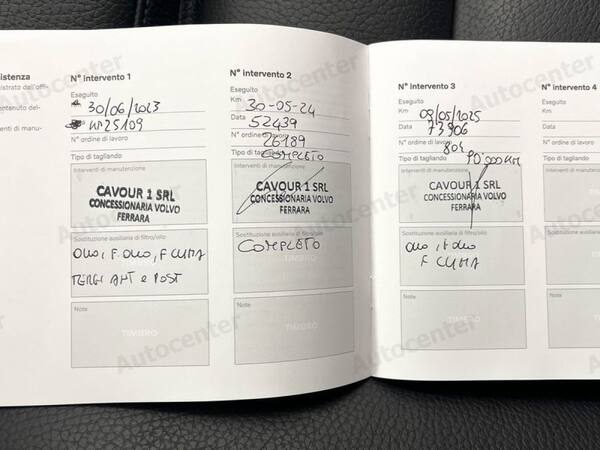 istenza
istrato dall'offi-
ontenuto dei-
enti di manu-
N° intervento 1
Eseguito
30/06/2023
25109
TIMBRO
Interventi di manutenzione
CAVOUR 1 SRL
CONCESSIONARIA VOLVO
FERRARA
Sostituzione ausiliaria di filtro/olio
OLIO, F. OLIO, F CLIMA
TERGI ANT e POST
Note
TIMBRO
N° intervento 2
Eseguito
Km 30-05-24
Data 52439
N° ordine di lavoro
26189
Tipo di tagliando
COMPLETO
Interventi di manutenzione
CAVOUR 1 SRL
CONCESSIONARIA VOLVO
FERRARA
Sostituzione ausiliaria di filtro/olio
COMPLETO
TIMBRO
Note
TIMBRO
N° intervento 3
Eseguito
Km 09/05/2025
Data 73906
N° ordine di lavoro
804
Tipo di tagliando
90'000 KM
Interventi di manutenzione
CAVOUR 1 SRL
CONCESSIONARIA VOLVO
FERRARA
Sostituzione ausiliaria di filtro/olio
OLIO, F. OLIO
F CLIMA
Note
TIMBRO
N° intervento 4
Eseguito
Km
Data
N° ordine di lavoro
Tipo di tagliando
Autocenter